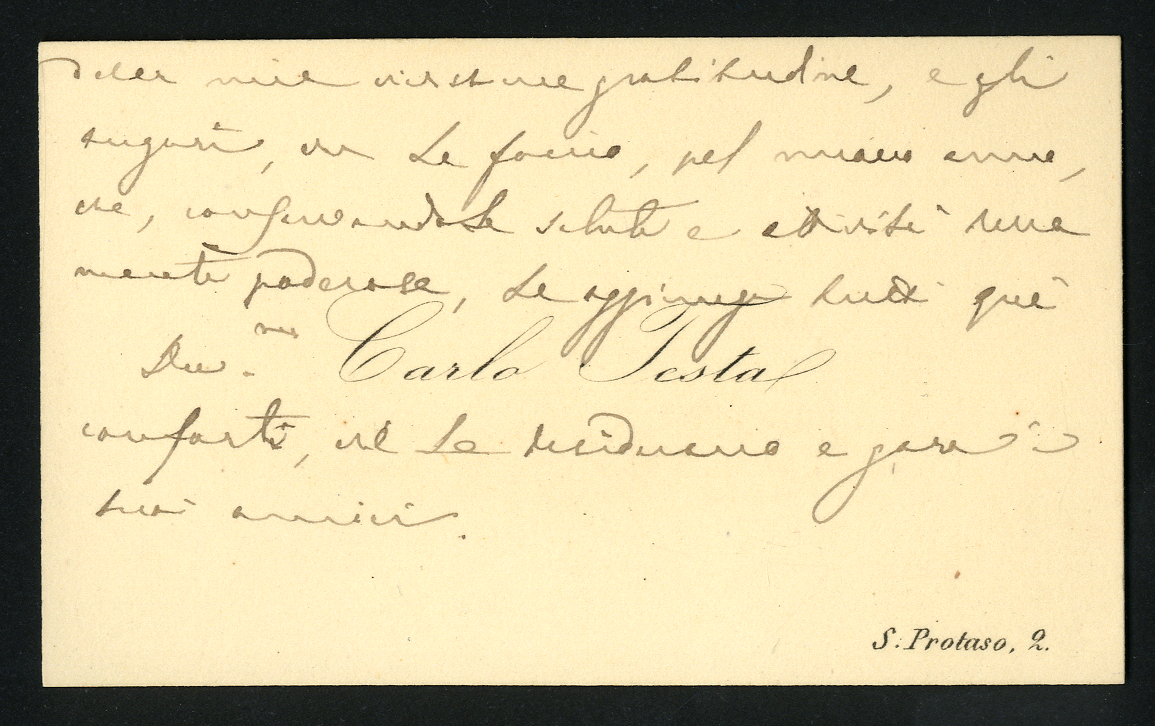 della mia viva gratitudine, e gli
auguri, che Le faccio, pel nuovo anno,
che, conservandoLe salute e attività della
mente poderosa, Le aggiunga tutti quei
Dev.mo Carlo Testa
conforti, che Le desiderano a gara i
suoi amici.
S. Protaso, 2.